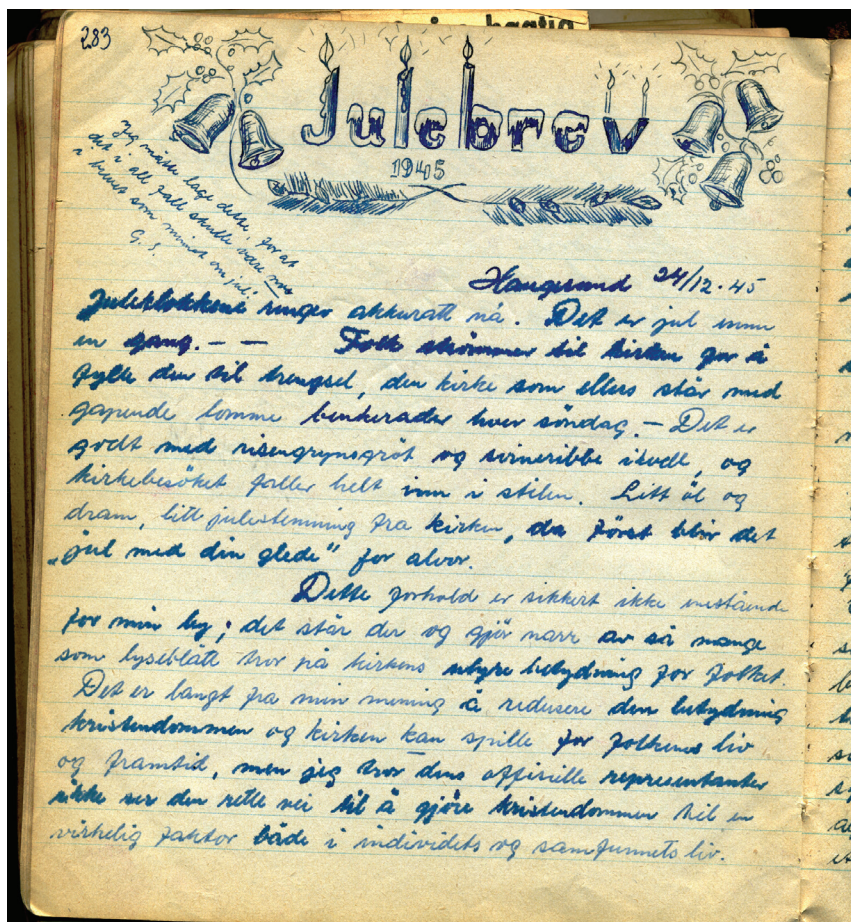 283
Julebrev
1945
Jeg måtte lage dette, for at
det i all fall skulle være noe
i brevet som minnet om jul!
G. S.
Haugesund 24/12-45
Juleklokkene ringer akkuratt nå. Det er jul ennu
en gang. — — Folk strömmer til kirken for å
fylle den til trengsel, den kirke som ellers står med
gapende tomme benkerader hver söndag. — Det er
godt med risengrynsgröt og svineribbe ikveld, og
kirkebesöket faller helt inn i stilen. Litt öl og
dram, litt julestemning fra kirken, da först blir det
„jul med din glede" for alvor.
Dette forhold er sikkert ikke enestående
for min by; det står der og gjör narr av så mange
som lyseblått tror på kirkens uhyre betydning for folket.
Det er langt fra min mening å redusere den betydning
kristendommen og kirken kan spille for folkenes liv
og framtid, men jeg tror dens offisielle representanter
ikke ser den rette vei til å gjöre kristendommen til en
virkelig faktor både i individets og samfunnets liv.